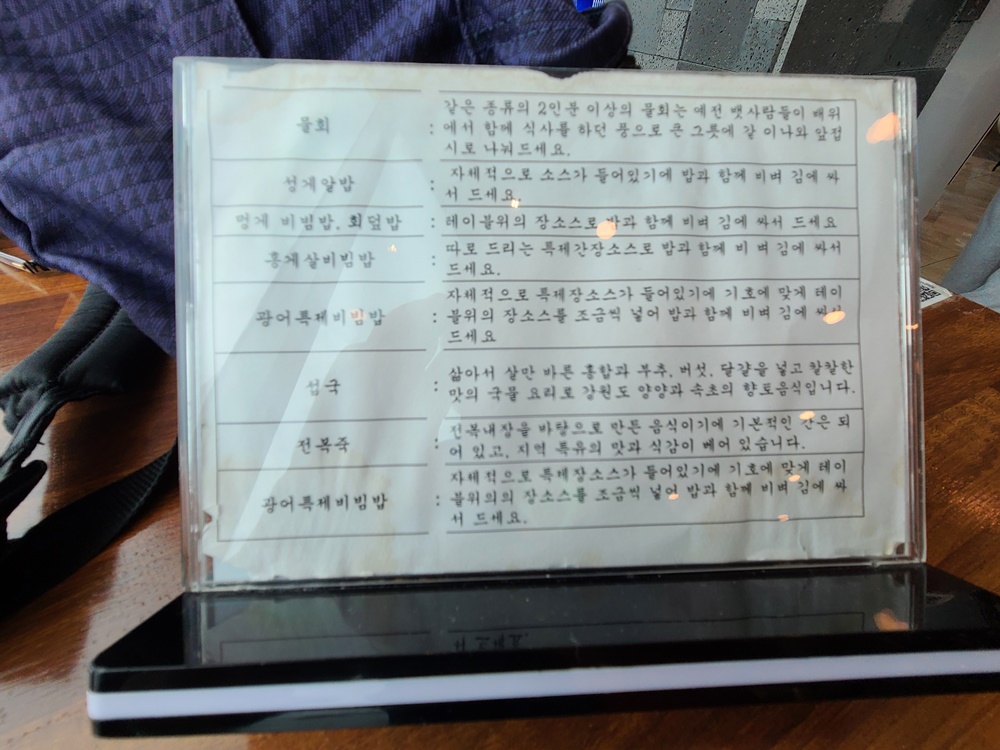 물회 : 같은 종류의 2인분 이상의 물회는 예전 뱃사람들이 배위
에서 함께 식사를 하던 풍으로 큰 그릇에 같이나와 앞접
시로 나눠드세요.
성게알밥 : 자체적으로 소스가 들어있기에 밥과 함께 비벼 김에 싸
서 드세요.
멍게 비빔밥, 회덮밥 : 테이블위의 장소스로 밥과 함께 비벼 김에 싸서 드세요
홍게살비빔밥 : 따로 드리는 특제간장소스로 밥과 함께 비벼 김에 싸서
드세요.
광어특제비빔밥 : 자체적으로 특제장소스가 들어있기에 기호에 맞게 테이
블위의 장소스를 조금씩 넣어 밥과 함께 비벼 김에 싸서
드세요
섭국 : 삶아서 살만 바른 홍합과 부추, 버섯, 달걀을 넣고 칼칼한
맛의 국물 요리로 강원도 양양과 속초의 향토음식입니다.
전복죽 : 전복내장을 바탕으로 만든 음식이기에 기본적인 간은 되
어 있고, 지역 특유의 맛과 식감이 베어 있습니다.
광어특제비빔밥 : 자체적으로 특제장소스가 들어있기에 기호에 맞게 테이
블위의의 장소스를 조금씩 넣어 밥과 함께 비벼 김에 싸
서 드세요.